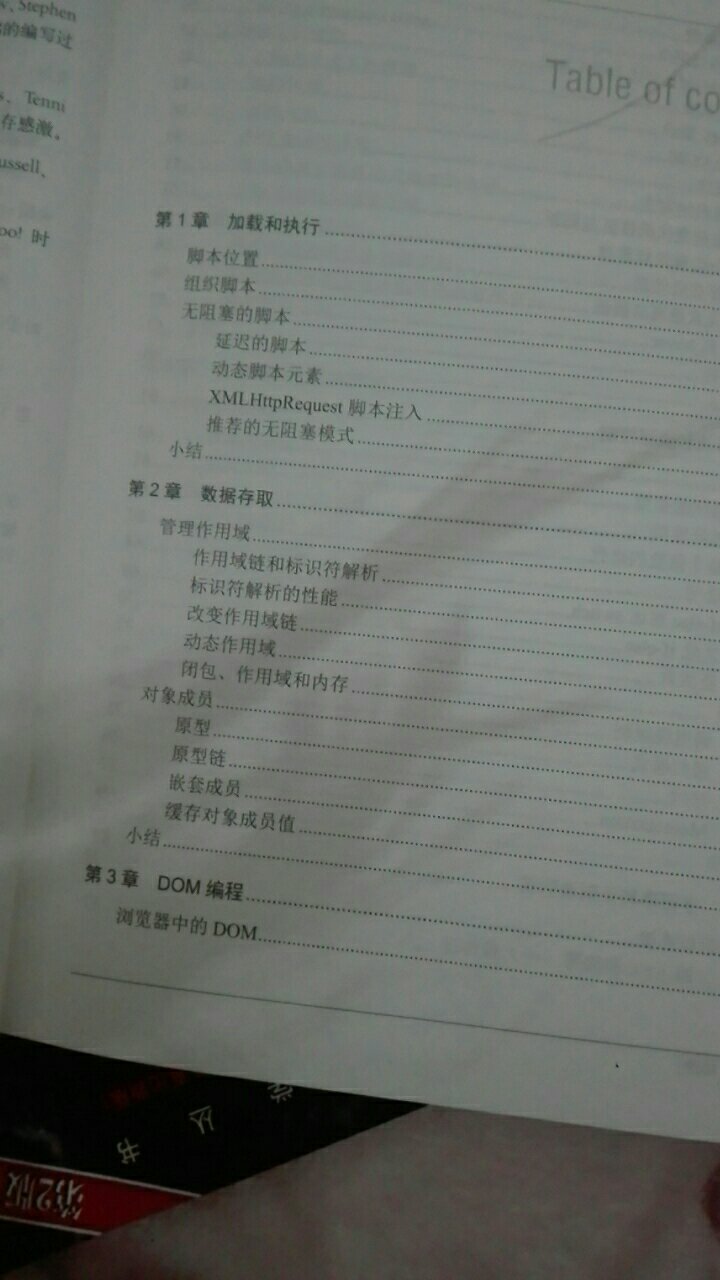 Stephen
的编写过
Tenni
存感激。
ussell、
oo! 时
Table of co
第1章 加载和执行
脚本位置
组织脚本
无阻塞的脚本
延迟的脚本
动态脚本元素
XMLHttpRequest 脚本注入
推荐的无阻塞模式
小结
第2章 数据存取
管理作用域
作用域链和标识符解析
标识符解析的性能
改变作用域链
动态作用域
闭包、作用域和内存
对象成员
原型
原型链
嵌套成员
缓存对象成员值
小结
第3章 DOM 编程
浏览器中的 DOM
丛书
第2版